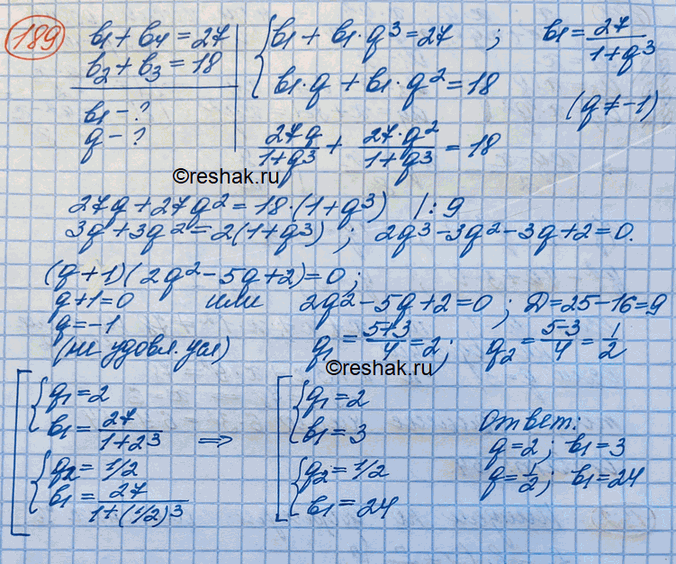 189
b1 + b4 = 27
b2 + b3 = 18
b1 - ?
q - ?
{ b1 + b1·q³ = 27 ; b1 = 27/(1+q³)
b1·q + b1·q² = 18
(q ≠ -1)
27q/(1+q³) + 27·q²/(1+q³) = 18
©reshak.ru
27q + 27q² = 18·(1+q³) |: 9
3q + 3q² = 2(1+q³) ; 2q³ - 3q² - 3q + 2 = 0.
(q+1)(2q² - 5q + 2) = 0;
q+1 = 0 или 2q² - 5q + 2 = 0 ; D = 25 - 16 = 9
q = -1
(не удовл. усл)
q1 = (5+3)/4 = 2; q2 = (5-3)/4 = 1/2
©reshak.ru
[ { q1 = 2
b1 = 27/(1+2³)
{ q2 = 1/2
b1 = 27/(1+(1/2)³)
⇒
[ { q1 = 2
b1 = 3
{ q2 = 1/2
b1 = 24
Ответ:
q = 2; b1 = 3
q = 1/2; b1 = 24